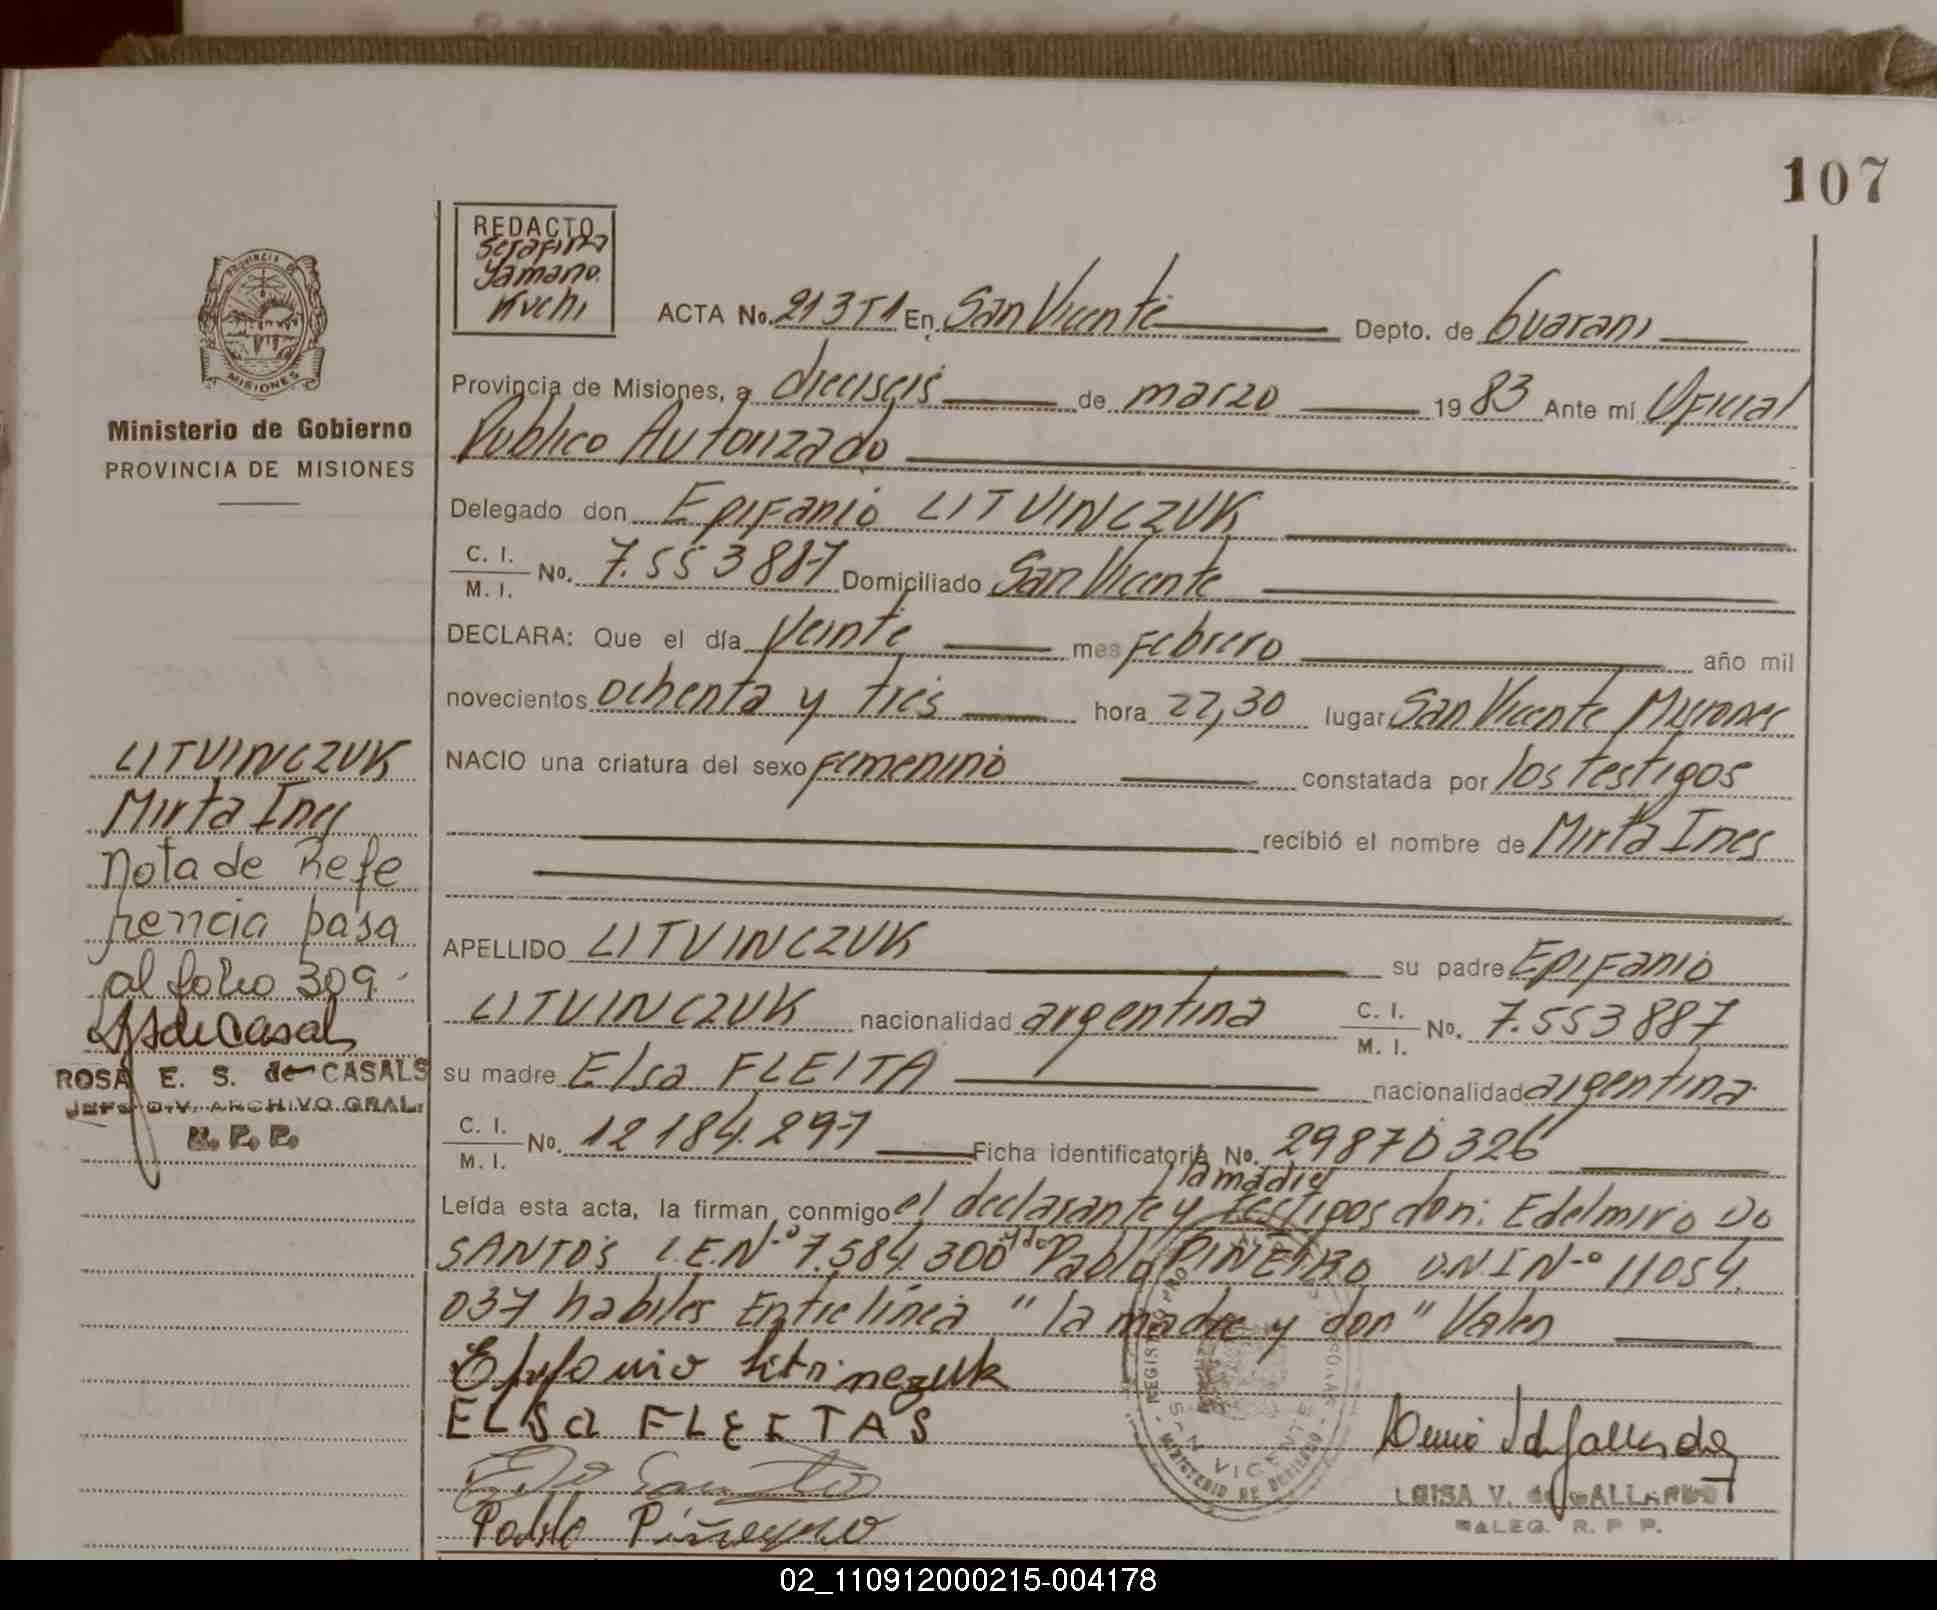 107
REDACTO
Serafina
Yamano.
Kuchi
ACTA No. 213T1 En San Vicente Depto. de Guarani
Provincia de Misiones, a dieciseis de marzo 1983 Ante mí Oficial
Publico Autorizado
Delegado don Epifanio LITVINCZUK
C. I.
M. I. No. 7.553887 Domiciliado San Vicente
DECLARA: Que el día veinte mes Febrero año mil
novecientos ochenta y tres hora 22,30 lugar San Vicente Misiones
NACIO una criatura del sexo femenino constatada por los testigos
recibió el nombre de Mirta Ines
APELLIDO LITVINCZUK su padre Epifanio
LITVINCZUK nacionalidad argentina C. I.
M. I. No. 7.553887
su madre Elsa FLEITA nacionalidad argentina
C. I.
M. I. No. 12184.297 Ficha identificatoria No. 29870326
la madre
Leída esta acta, la firman conmigo el declarante y testigos don: Edelmiro Do
y don
SANTOS L.E.N-º 7.584.300 Pablo PINEIRO D.N.I N-º 11054.
037 habiles Entrelínea "la madre y don" Valen
Epifanio Litvinczuk
ELSa FLEITAS
Pablo Piñeyro
SAN VICENTE
MINISTERIO DE GOBIERNO
LUISA V. de GALLARDO
R. P. P.
PROVINCIA DE
MISIONES
Ministerio de Gobierno
PROVINCIA DE MISIONES
LITVINCZUK
Mirta Ines
Nota de Refe
rencia pasa
al folio 309.
ROSA E. S. de CASALS
JEFE DIV. ARCHIVO GRAL.
R. P. P.
02_110912000215-004178